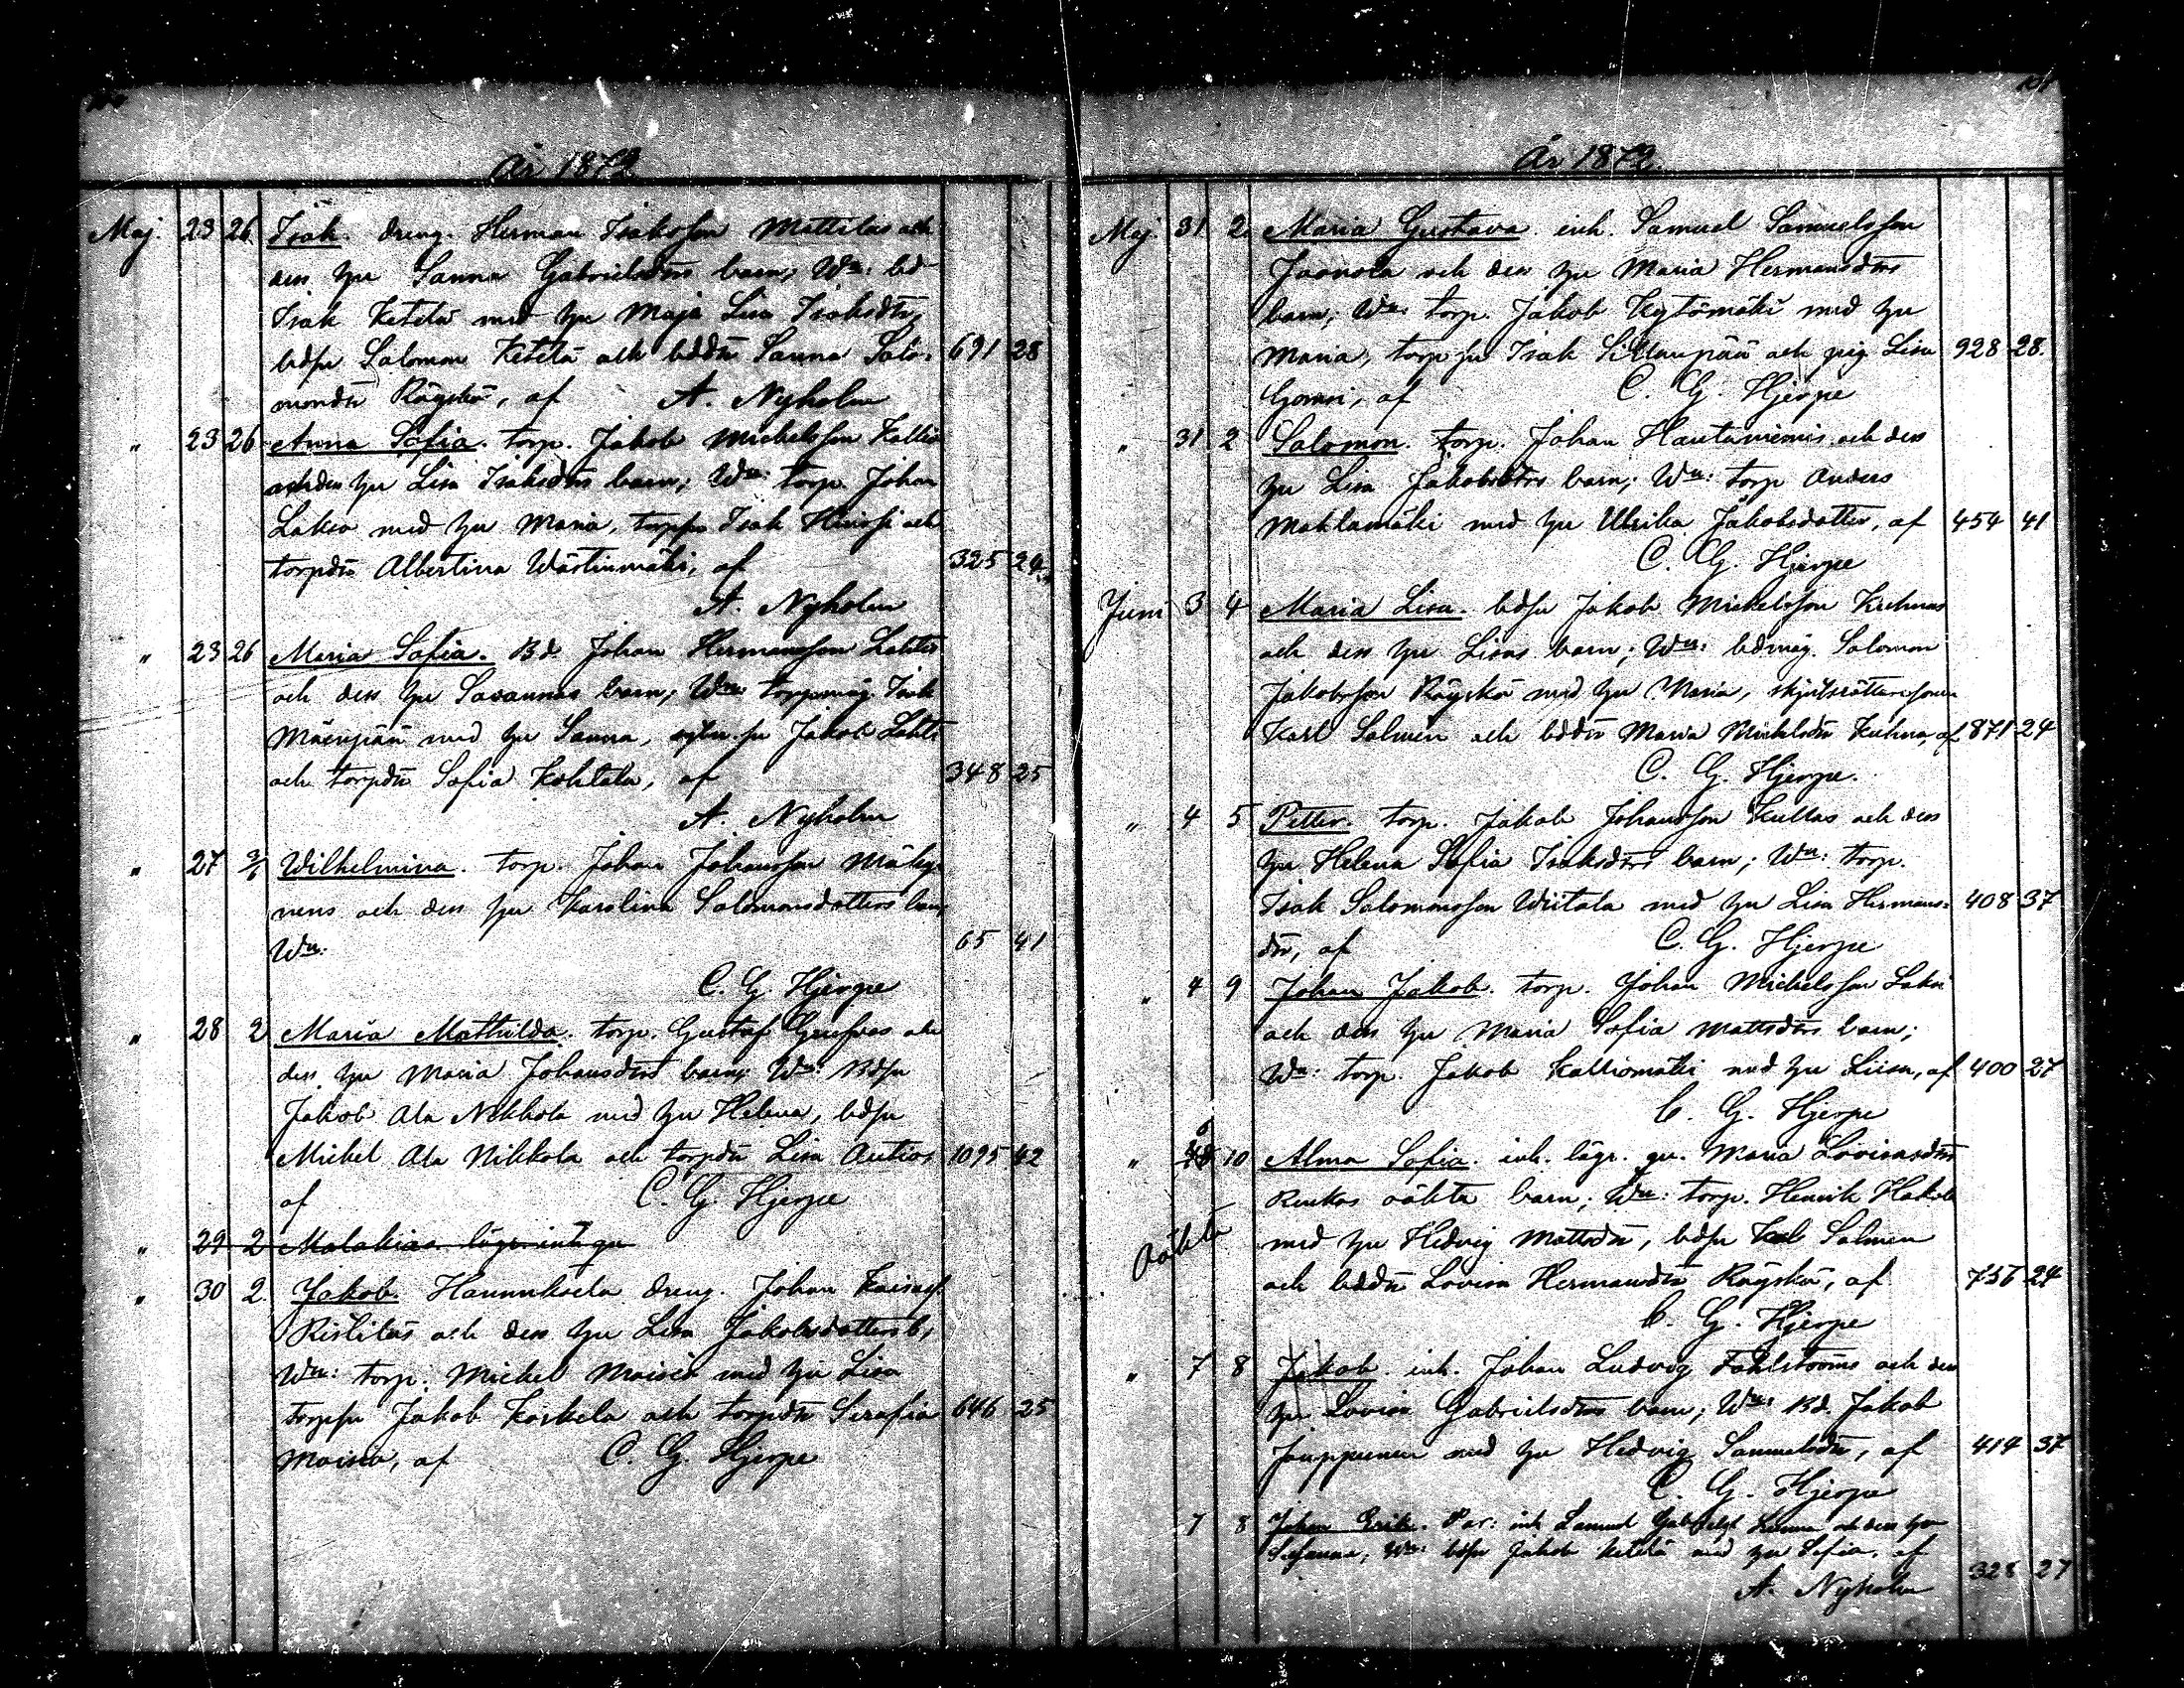 År 1872
Maj. 23 26 Isak. dreng. Herman Isaksson Mattilas och
dess hu Sanna Gabrielsdtrs barn; Wn: bd
Isak Ketelä med hu Maja Lisa Isaksdtr,
bdsn Salomon Ketelä och bddtr Sanna Salo- 691 28
monsdtr Räyskä, af A. Nyholm
" 23 26 Anna Sofia. torp. Jakob Michelsson Kallio
och dess hu Lisa Isaksdtrs barn; Wn: torp. Johan
Lakso med hu Maria, torpsn Isak Hirvsi och
torpdtr Albertina Wästinmäki, af 325 24
A. Nyholm
" 23 26 Maria Sofia. Bd. Johan Hermansson Lahtis
och dess hu Susannas barn; Wn: torpmåg Isak
Mäenpää med hu Sanna, sytn. sn Jakob Lahti
och torpdtr Sofia Kohtala, af 348 25
A. Nyholm
" 27 2/6 Wilhelmina. torp. Johan Johansson Mäky-
nens och dess hu Karolina Salomonsdotters barn,
Wn: 65 41
C. G. Hjerpe
" 28 2 Maria Mathilda. torp. Gustaf och
dess hu Maria Johansdtrs barn; Wn: Bdsn
Jakob Ala Nikkola med hu Helena, bdsn
Michel Ala Nikkola och torpdtr Lisa Autios 1095 42
af C. G. Hjerpe
" 29 2 Malakias lögr. inh. qu
" 30 2. Jakob. Hannuksela dreng. Johan Kaisasf.
Ristiläs och dess hu Lisa Jakobsdotters b,
Wn: torp. Michel Moisio med hu Lisa
torpsn Jakob Koskela och torpdtr Serafia 646 25
Moisio, af C. G. Hjerpe
År 1872.
Maj. 31 2. Maria Gustava. inh. Samuel Samuelsson
Jaonola och dess hu Maria Hermansdtrs
barn; Wn: torp. Jakob Kytömäki med hu
Maria, torpsn Isak Sillanpää och pig. Lisa 928 28.
af C. G. Hjerpe
" 31 2 Salomon. torp. Johan Hautaniemis och dess
hu Lisa Jakobsdtrs barn; Wn: torp Anders
Mahlamäki med hu Ulrika Jakobsdotter, af 454 41
C. G. Hjerpe
Juni 3 4 Maria Lisa. bdsn Jakob Michelsson Kuhnas
och dess hu Lisas barn; Wn: bdmåg. Salomon
Jakobsson Räyskä med hu Maria, skjutsrättaresonen
Karl Salmen och bddtr Maria Michelsdtr Kuhna, af 871 24
C. G. Hjerpe.
" 4 5 Petter. torp. Jakob Johansson Kultas och dess
hu Helena Sofia Isaksdtrs barn; Wn: torp.
Isak Salomonsson Wiitala med hu Lisa Hermans- 408 37
dtr, af C. G. Hjerpe
" 4 9 Johan Jakob. torp. Johan Michelsson Laksi
och dess hu Maria Sofia Mattsdtrs barn;
Wn: torp. Jakob Kalliomäki med hu Liisa, af 400 27
C. G. Hjerpe
" 10 Alma Sofia. inh. lägr. qu. Maria Lovisasdtrs
Renkos oäkta barn; Wn: torp. Henrik Hakola
oäkta med hu Hedvig Mattsdtr, bdsn Karl Salmen
och bddtr Lovisa Hermansdtr Räyskä, af 756 24
C. G. Hjerpe
" 7 8 Jakob. inh. Johan Ludvig Fahlströms och dess
hu Lovisa Gabrielsdtrs barn; Wn: Bd. Jakob
Jouppunen med hu Hedvig Samuelsdtr, af 414 37
C. G. Hjerpe
7 8 Johan Erik. Par: inh Samuel och dess hu
Susanna; Wn: bdsn Jakob Ketelä med hu Sofia, af
328 27
A. Nyholm